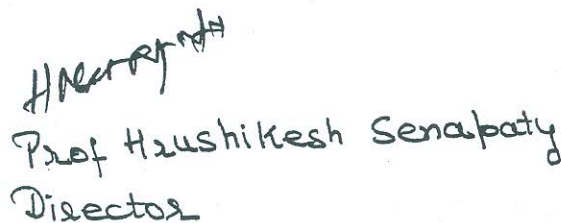 Prof Hrushikesh Senapaty
Director